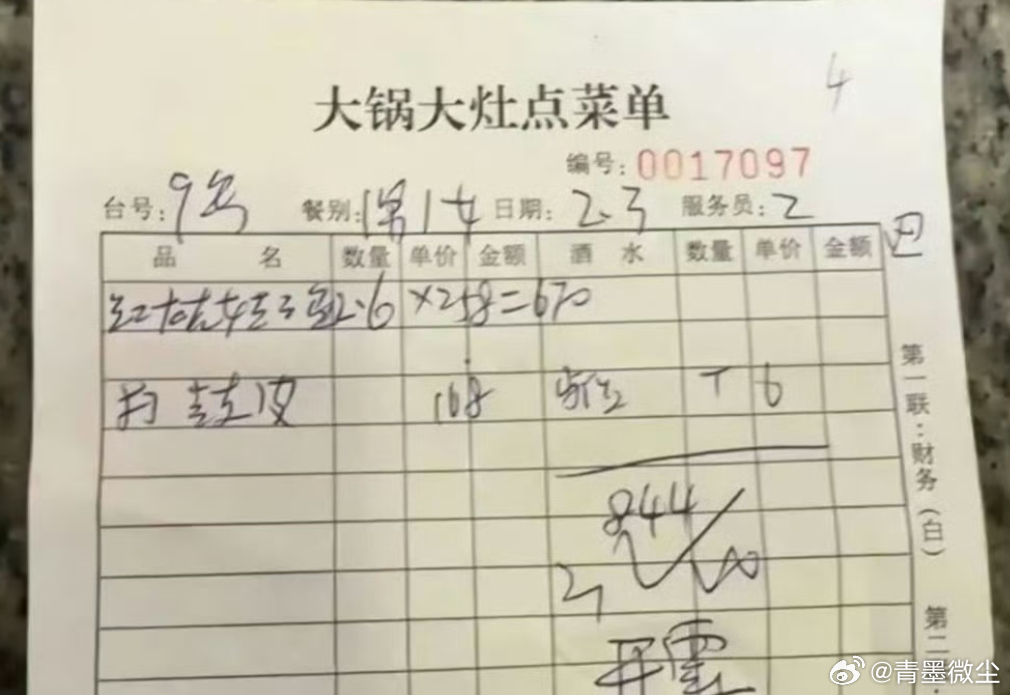 4
大锅大灶点菜单
编号: 0017097
台号: 9号 餐别: 日期: 2.3 服务员: 2
品 名 数量 单价 金额 酒 水 数量 单价 金额
2.6 ×258=670
扣 皮 168 6
844
开
第一联：财务（白）
第二
@青墨微尘